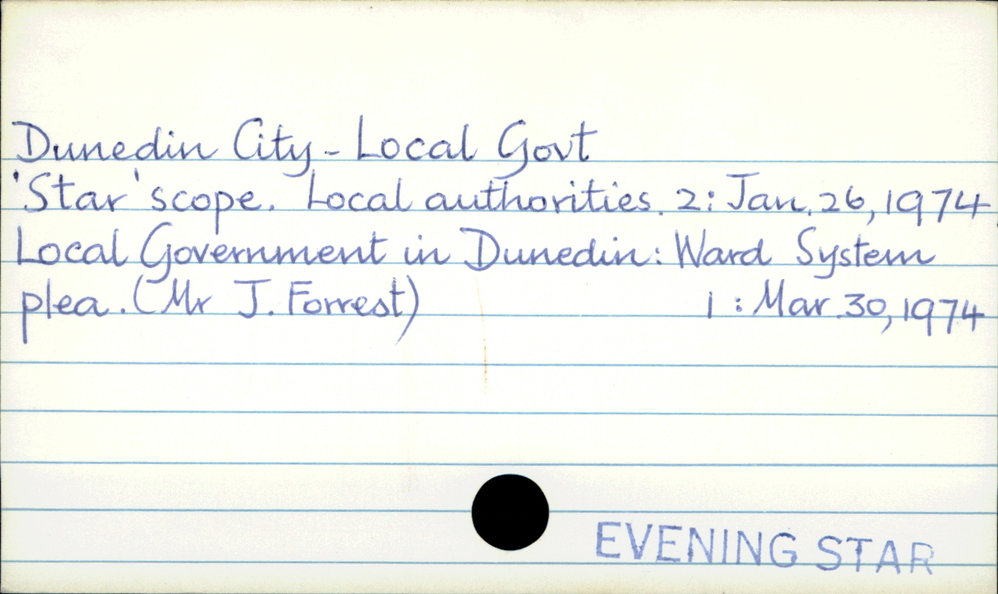 Dunedin City - Local Govt
'Star' scope. Local authorities. 2: Jan. 26, 1974
Local Government in Dunedin: Ward System
plea. (Mr J. Forrest) 1: Mar. 30, 1974
EVENING STAR